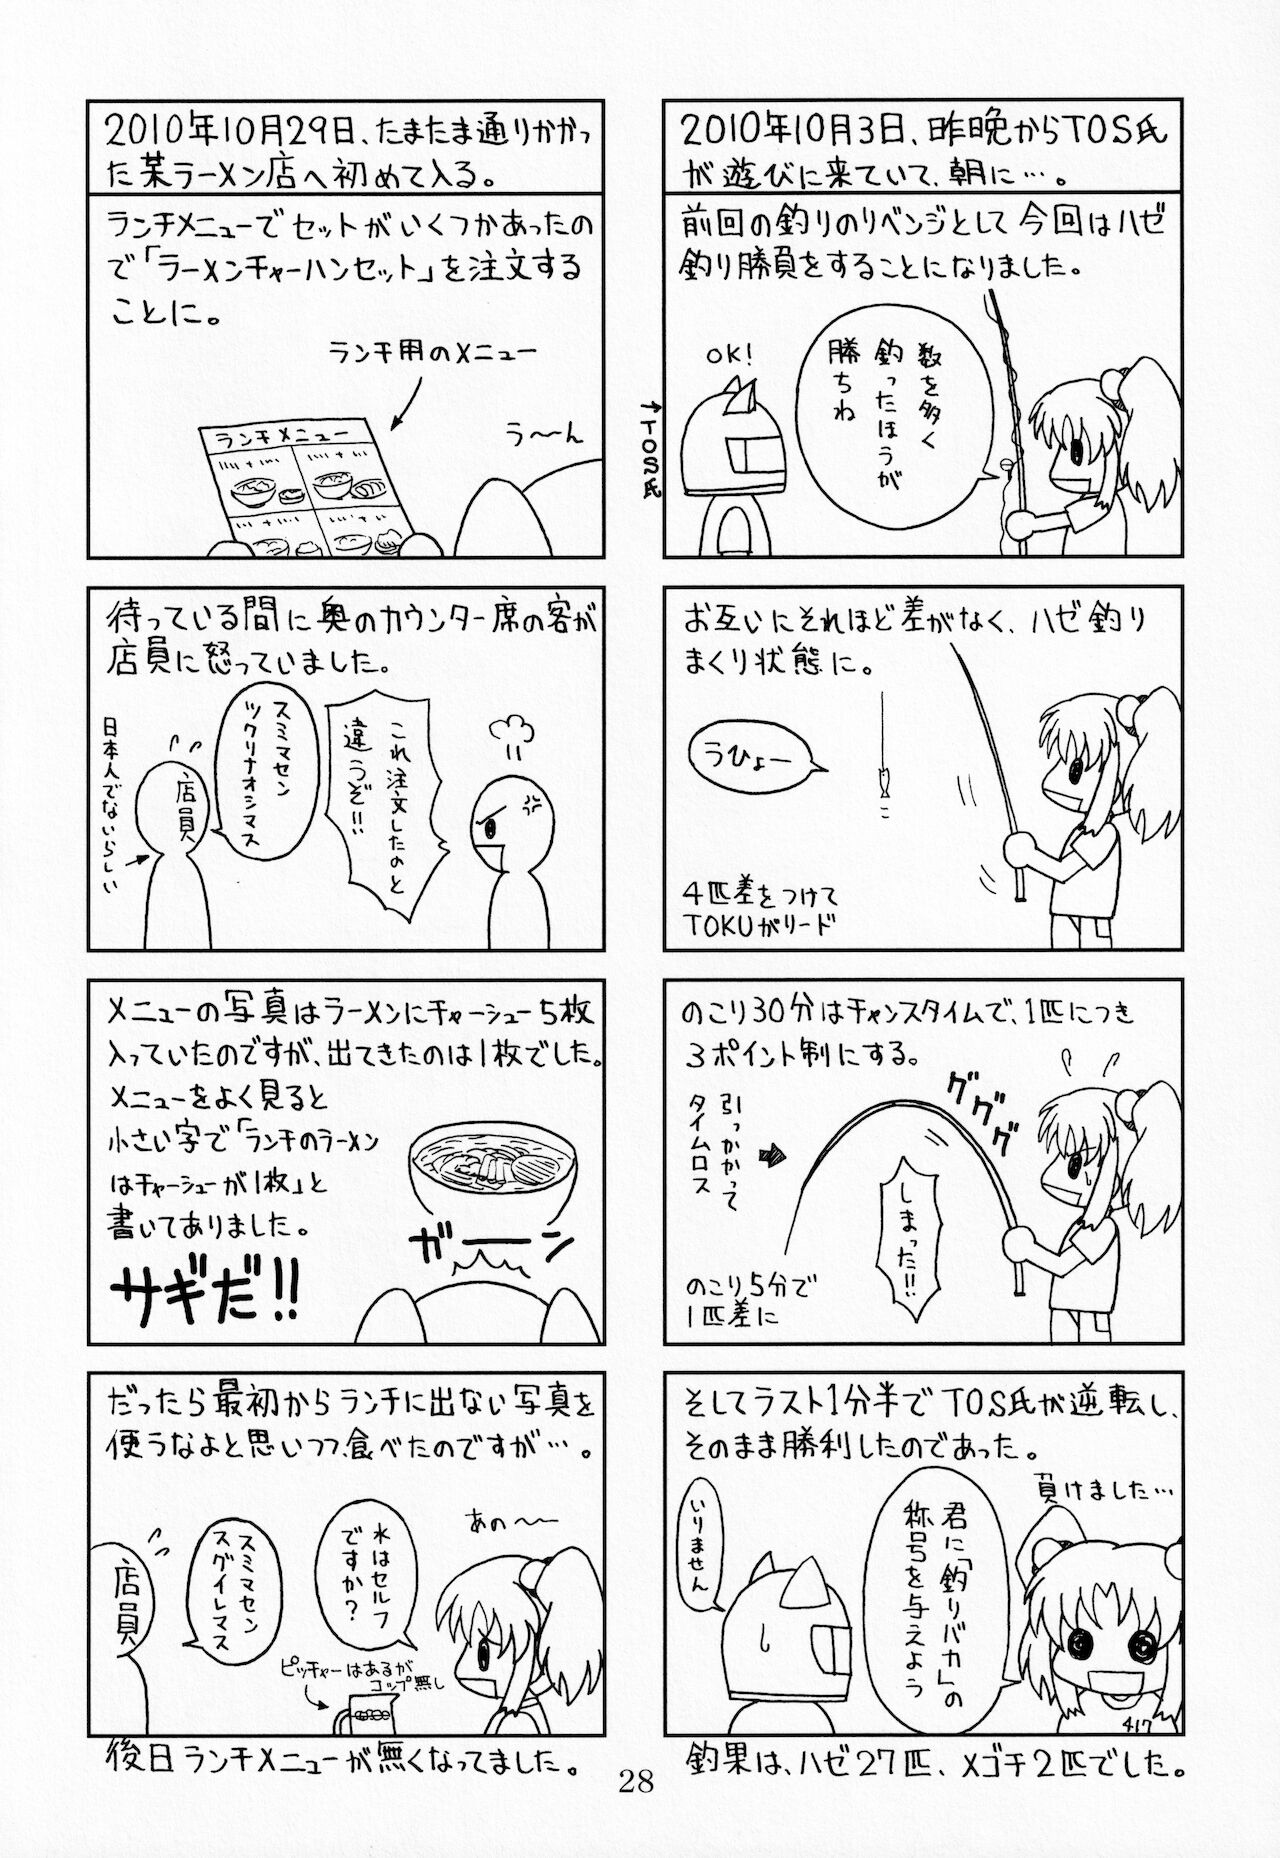 2010年10月3日、昨晩からTOS氏
が遊びに来ていて、朝に…。
前回の釣りのリベンジとして今回はハゼ
釣り勝負をすることになりました。
数を多く
釣ったほうが
勝ちね
OK!
↑TOS氏
お互いにそれほど差がなく、ハゼ釣り
まくり状態に。
うひょー
4匹差をつけて
TOKUがリード
のこり30分はチャンスタイムで、1匹につき
3ポイント制にする。
ググググ
引っかかって
タイムロス
しまった!!
のこり5分で
1匹差に
そしてラスト1分半でTOS氏が逆転し、
そのまま勝利したのであった。
負けました…
君に「釣りバカ」の
称号を与えよう
いりません
417
釣果は、ハゼ27匹、メゴチ2匹でした。
2010年10月29日、たまたま通りかかっ
た某ラーメン店へ初めて入る。
ランチメニューでセットがいくつかあったの
で「ラーメンチャーハンセット」を注文する
ことに。
ランチ用のメニュー
ランチメニュー
う〜〜ん
待っている間に奥のカウンター席の客が
店員に怒っていました。
これ注文したのと
違うぞ!!
スミマセン
ツクリナオシマス
店員
日本人でないらしい
メニューの写真はラーメンにチャーシュー5枚
入っていたのですが、出てきたのは1枚でした。
メニューをよく見ると
小さい字で「ランチのラーメン
はチャーシューが1枚」と
書いてありました。
ガーーン
サギだ!!
だったら最初からランチに出ない写真を
使うなよと思いつつ、食べたのですが…。
あの〜〜
水はセルフ
ですか?
スミマセン
スグイレマス
店員
ピッチャーはあるが
コップ無し
後日ランチメニューが無くなってました。
28